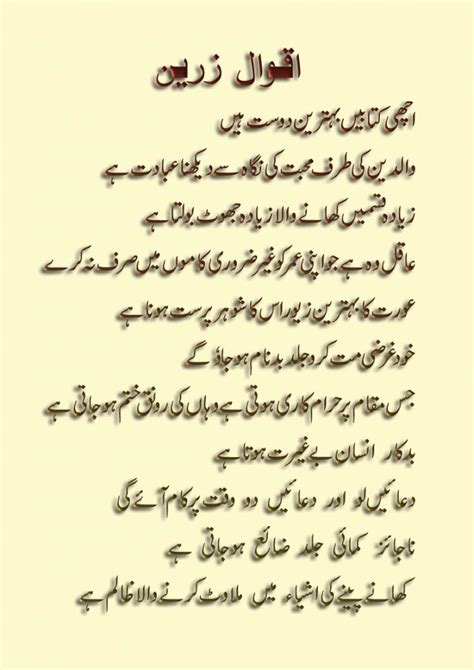 اقوال زرین
اچھی کتابیں بہترین دوست ہیں
والدین کی طرف محبت کی نگاہ سے دیکھنا عبادت ہے
زیادہ قسمیں کھانے والا زیادہ جھوٹ بولتا ہے
عاقل وہ ہے جو اپنی عمر کو غیر ضروری کاموں میں صرف نہ کرے
عورت کا بہترین زیور اس کا شوہر پرست ہونا ہے
خود غرضی مت کرو جلد بدنام ہو جاؤ گے
جس مقام پر حرام کاری ہوتی ہے وہاں کی رونق ختم ہو جاتی ہے
بدکار انسان بے غیرت ہوتا ہے
دعائیں لو اور دعائیں دو وقت پر کام آئے گی
ناجائز کمائی جلد ضائع ہو جاتی ہے
کھانے پینے کی اشیاء میں ملاوٹ کرنے والا ظالم ہے